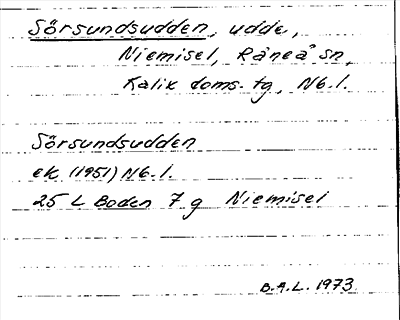 Sörsundsudden, udde,
Niemisel, Råneå sn,
Kalix doms. tg, Nb. l.
Sörsundsudden
ek (1951) Nb. l.
25 L Boden 7 g Niemisel
B.A.L. 1973